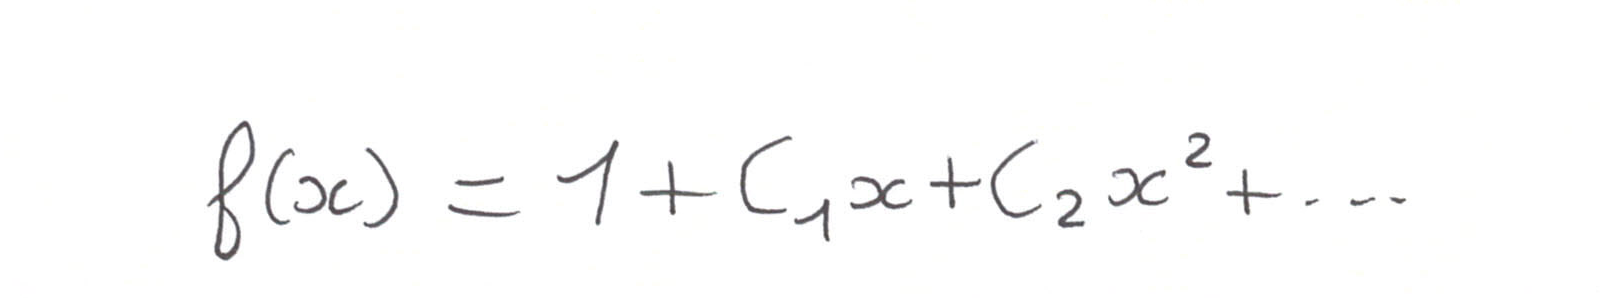 f(x) = 1 + C₁x + C₂x² + ....